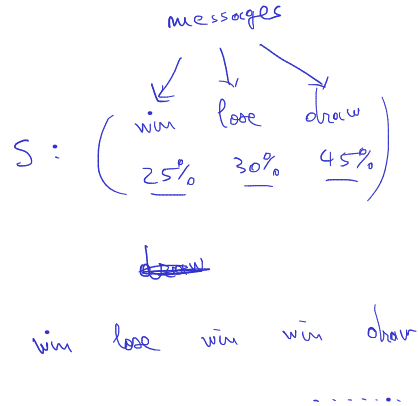 messages
win lose draw
S : ( 25% 30% 45% )
win lose win win draw